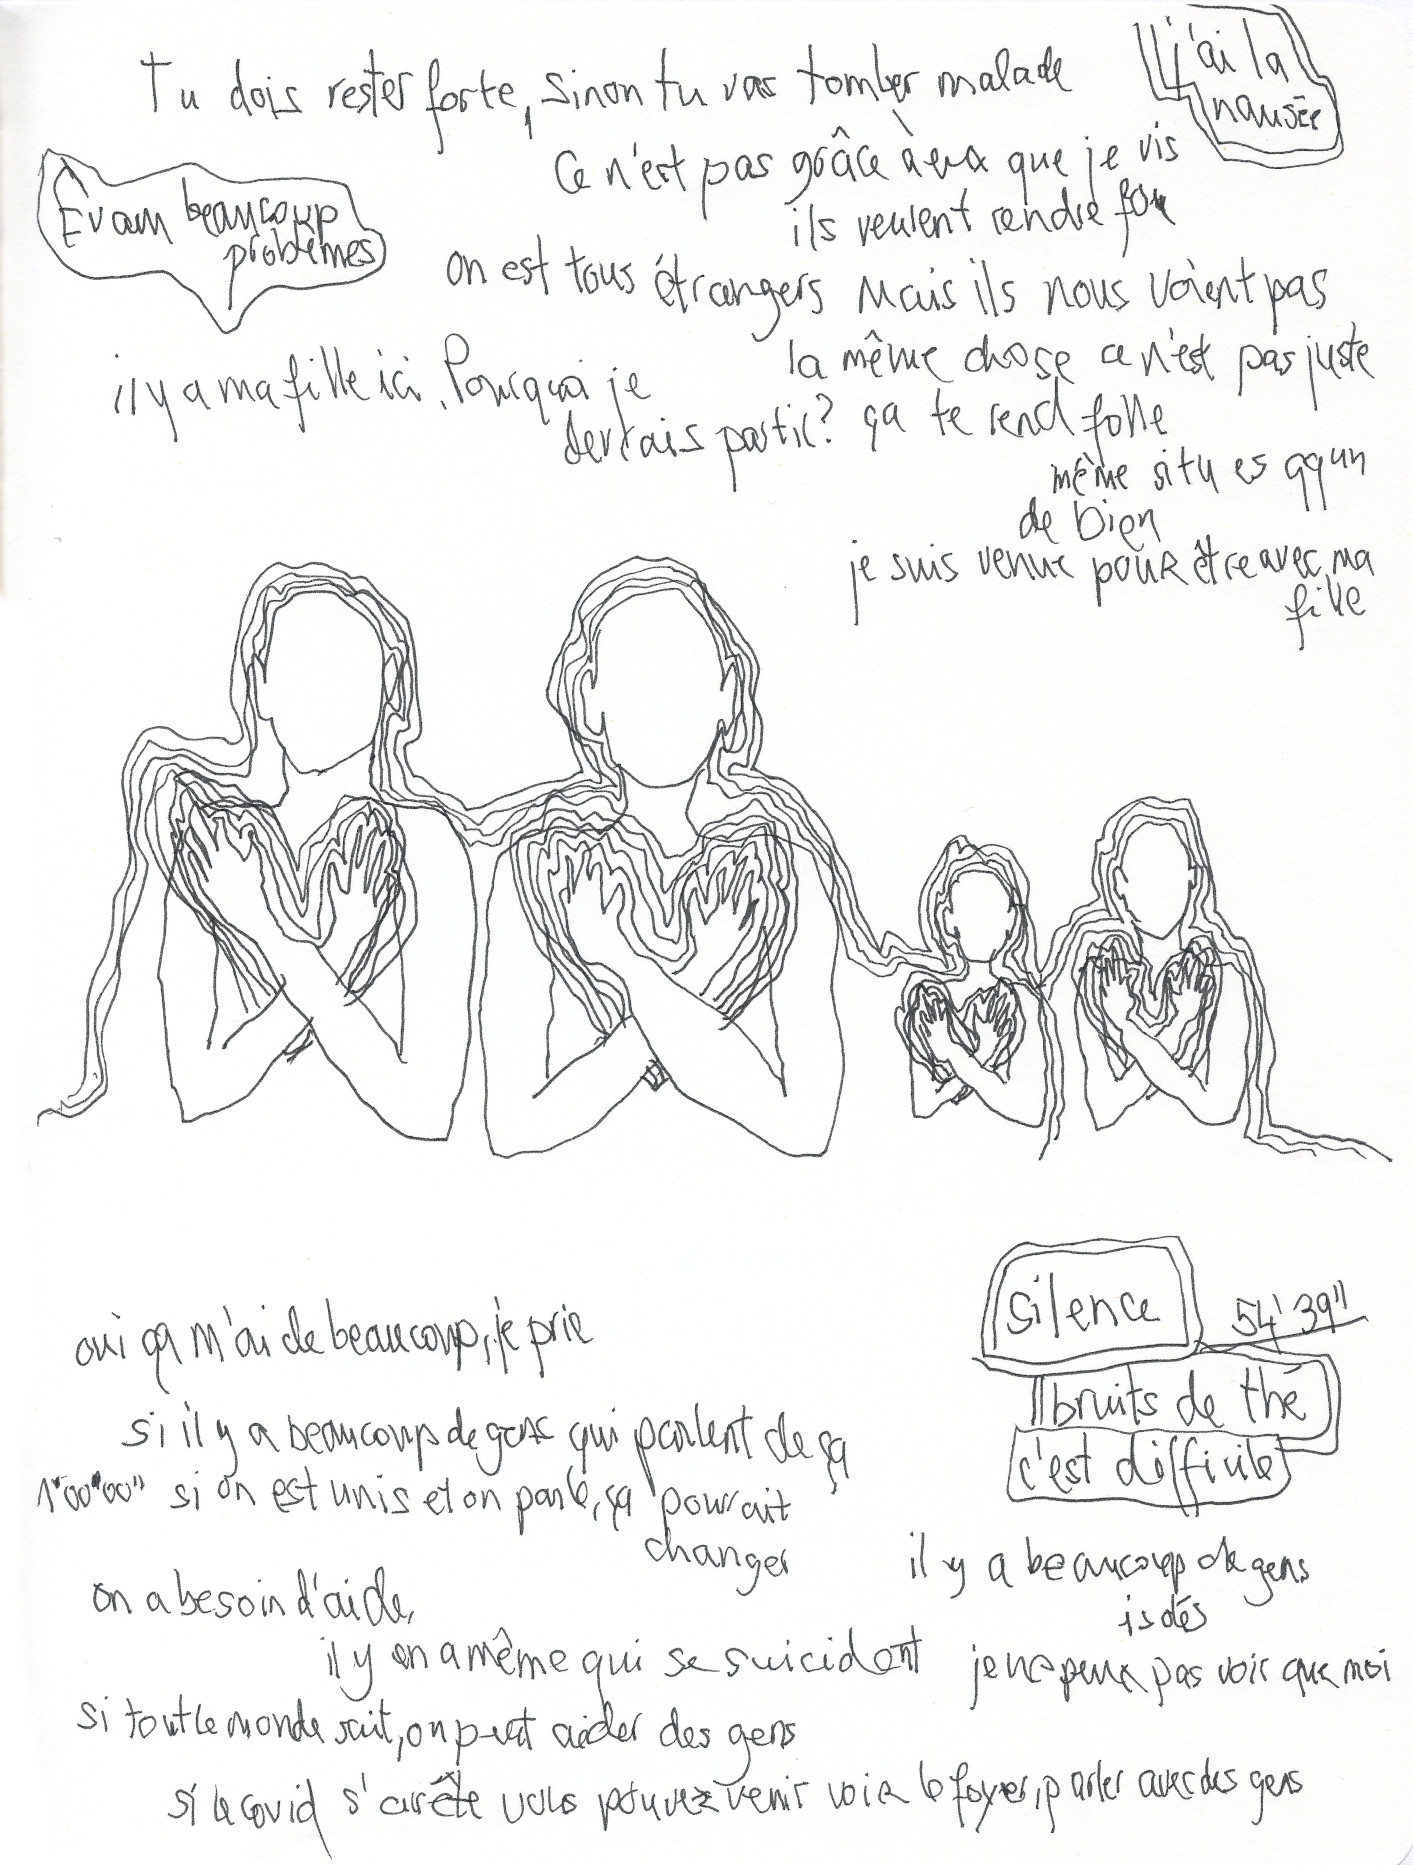 Tu dois rester forte, sinon tu vas tomber malade
j'ai la
nausée
Ce n'est pas grâce à eux que je vis
ils veulent rendre fou
Evam beaucoup
problèmes
on est tous étrangers Mais ils nous voient pas
la même chose ce n'est pas juste
il y a ma fille ici. Pourquoi je
devrais partir? ça te rend folle
même si tu es qqun
de bien
je suis venue pour être avec ma
fille
silence
54'39"
bruits de thé
c'est difficile
oui ça m'aide beaucoup, je prie
si il y a beaucoup de gens qui parlent de ça
1"00"00" si on est unis et on parle, ça pourrait
changer
il y a beaucoup de gens
isolés
on a besoin d'aide,
il y en a même qui se suicident
je ne peux pas voir que moi
si tout le monde sait, on peut aider des gens
si le covid s'arrête vous pouvez venir voir le foyer, parler avec des gens